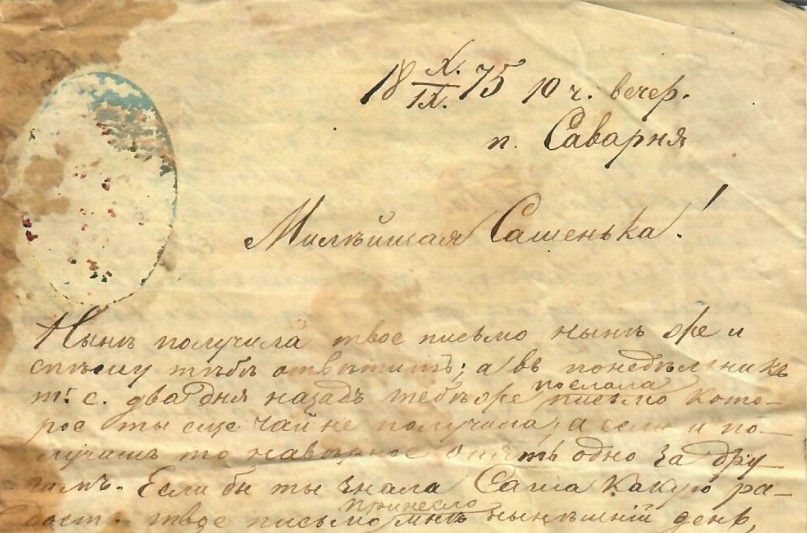 18 X./IX. 75 10 ч. вечер.
п. Саварня
Милѣйшая Сашенька!
Нынѣ получила твое письмо нынѣ же и
спѣшу тѣбѣ отвѣтить; а въ понедѣльникъ
т. с. два дня назадъ тебѣ же послала письмо кото-
рое ты еще чай не получила, а если и по-
лучишь то навѣрное опять одно за дру-
гимъ. Если бы ты знала Саша какую ра-
дость твое письмо принесло мнѣ нынѣшній день,